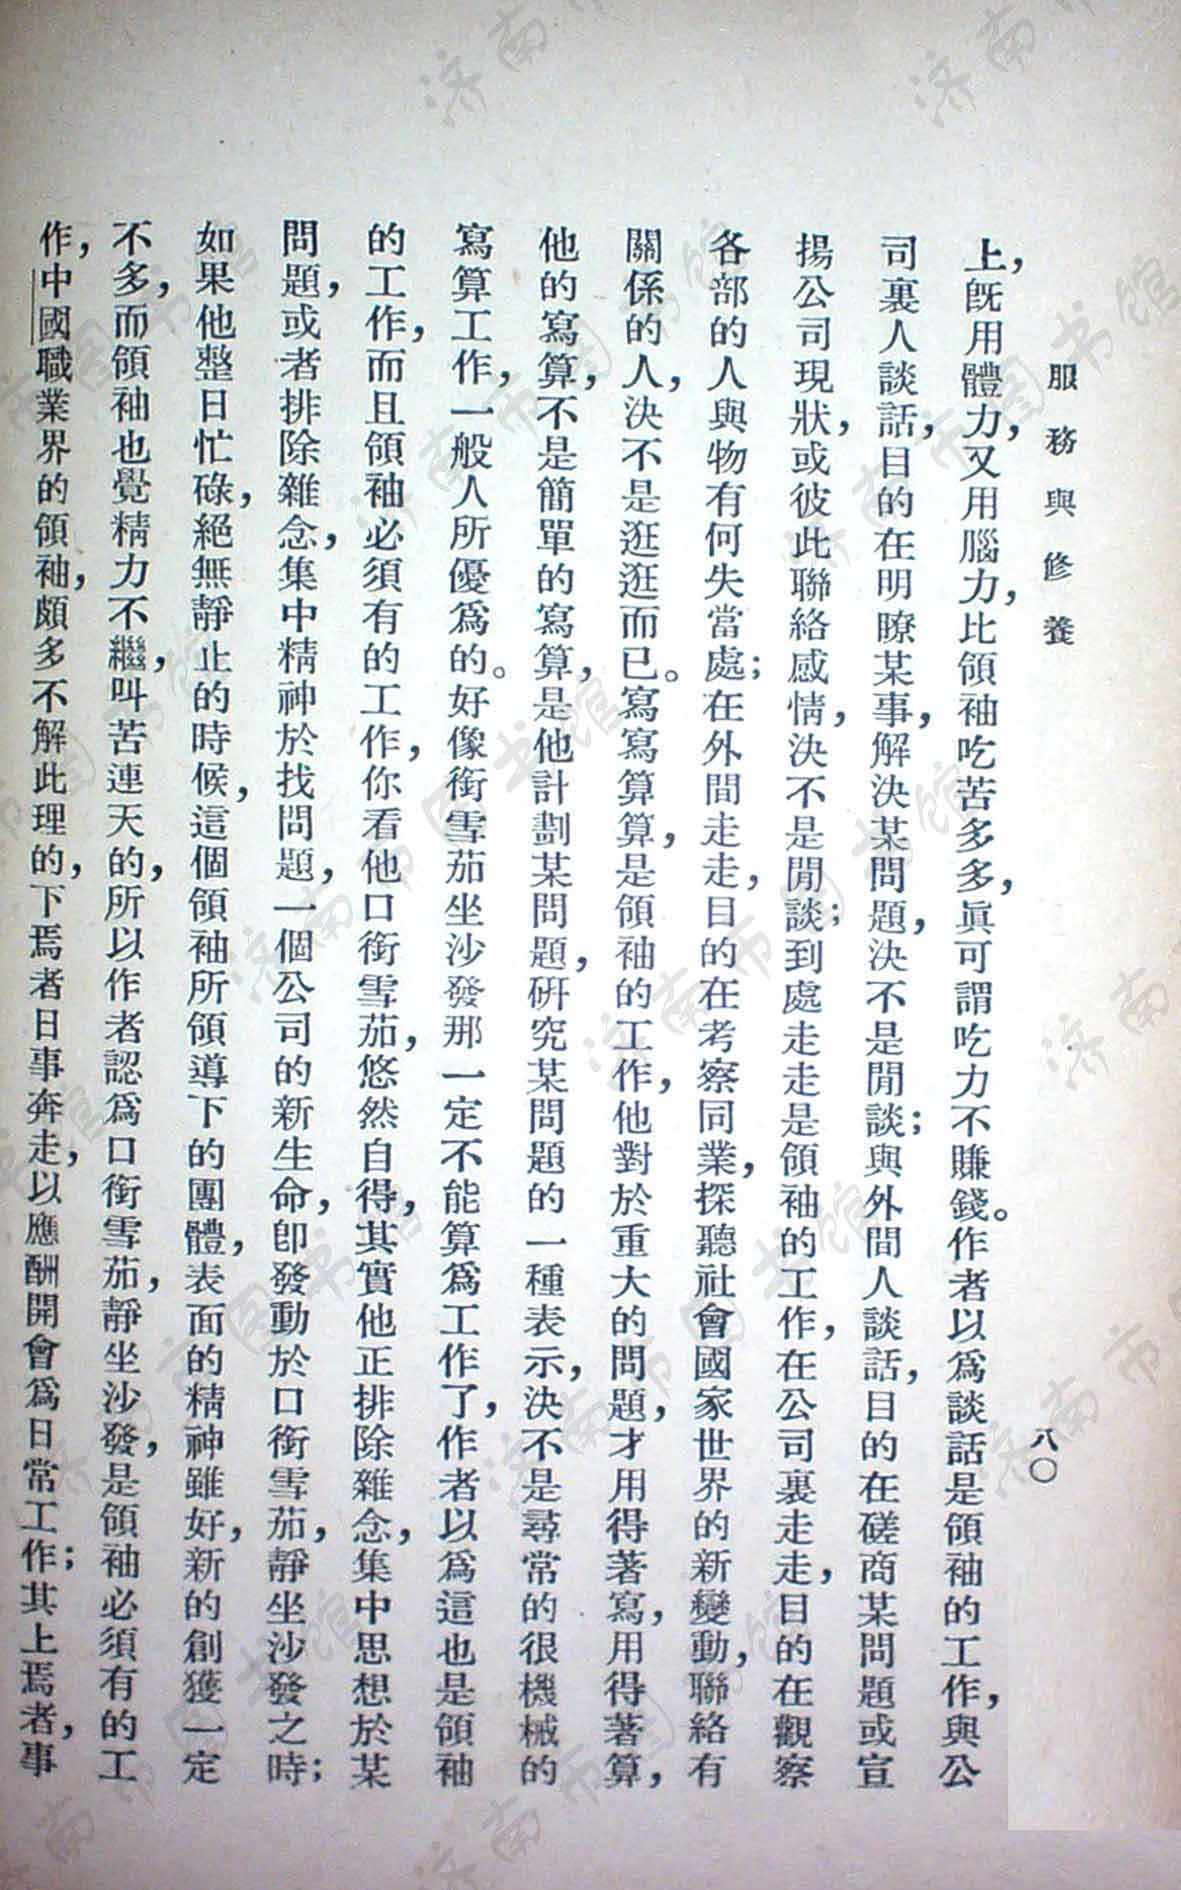 服務與修養
八〇
上，旣用體力，又用腦力，比領袖吃苦多多，眞可謂吃力不賺錢。作者以爲談話是領袖的工作，與公
司裏人談話，目的在明瞭某事，解決某問題，決不是閒談；與外間人談話，目的在磋商某問題或宣
揚公司現狀，或彼此聯絡感情，決不是閒談；到處走走是領袖的工作，在公司裏走走，目的在觀察
各部的人與物有何失當處；在外間走走，目的在考察同業，探聽社會國家世界的新變動，聯絡有
關係的人，決不是逛逛而已。寫寫算算，是領袖的工作，他對於重大的問題，才用得著寫，用得著算，
他的寫算，不是簡單的寫算，是他計劃某問題，研究某問題的一種表示，決不是尋常的很機械的
寫算工作，一般人所優爲的。好像銜雪茄坐沙發那一定不能算爲工作了，作者以爲這也是領袖
的工作，而且領袖必須有的工作，你看他口銜雪茄，悠然自得，其實他正排除雜念，集中思想於某
問題，或者排除雜念，集中精神於找問題，一個公司的新生命，卽發動於口銜雪茄，靜坐沙發之時；
如果他整日忙碌，絕無靜止的時候，這個領袖所領導下的團體，表面的精神雖好，新的創獲一定
不多，而領袖也覺精力不繼，叫苦連天的，所以作者認爲口銜雪茄，靜坐沙發，是領袖必須有的工
作，中國職業界的領袖，頗多不解此理的，下焉者日事奔走，以應酬開會爲日常工作；其上焉者，事
濟南市图书馆